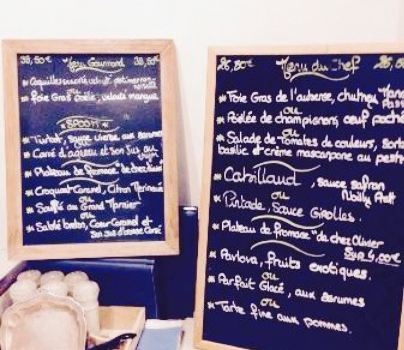 38,50€ Menu Gourmand 38,50€
* Coquilles
ou
* Foie Gras poêlé, velouté mangue
* SPOOM *
* Turbot, sauce vierge aux agrumes
ou
* Carré d'agneau et son jus au thym
* Plateau de fromage "de chez Olivier"
* Croquant Caramel, Citron Meringué
ou
* Soufflé au Grand Marnier
ou
* Sablé breton, Coeur Caramel et
28,50€ Menu du Chef 28,50€
* Foie Gras de l'auberge, chutney
ou
* Poêlée de champignons, oeuf poché
ou
* Salade de Tomates de couleurs,
basilic et crème mascarpone au pesto
* Cabillaud, sauce safran
Noilly Prat
ou
* Pintade, Sauce Girolles.
* Plateau de fromage "de chez Olivier
SUP 4,00€
* Pavlova, fruits exotiques.
ou
* Parfait Glacé, aux agrumes
ou
* Tarte fine aux pommes.